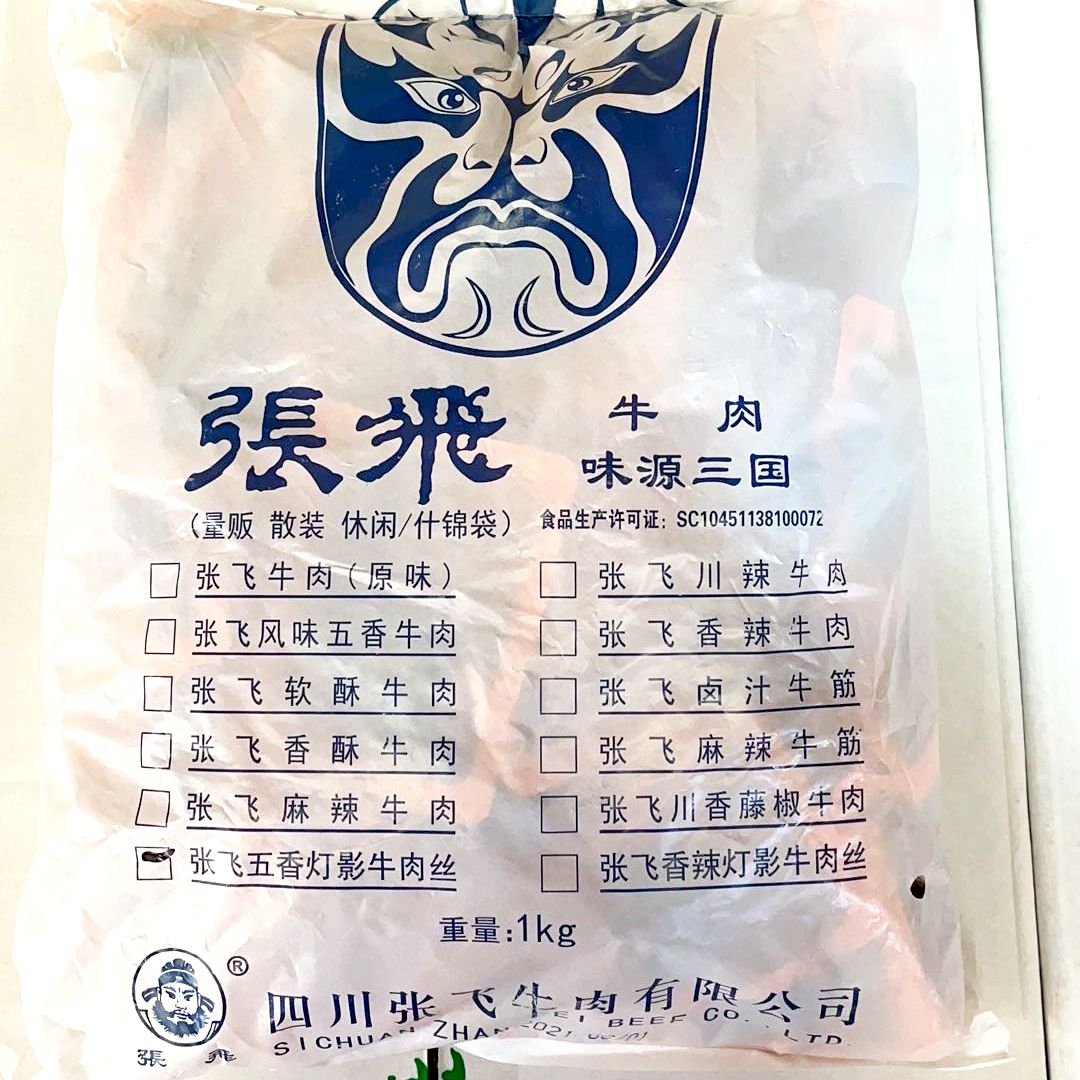 張飛 牛肉
味源三国
(量贩 散装 休闲/什锦袋) 食品生产许可证: SC10451138100072
张飞牛肉(原味) 张飞川辣牛肉
张飞风味五香牛肉 张飞香辣牛肉
张飞软酥牛肉 张飞卤汁牛筋
张飞香酥牛肉 张飞麻辣牛筋
张飞麻辣牛肉 张飞川香藤椒牛肉
张飞五香灯影牛肉丝 张飞香辣灯影牛肉丝
重量:1kg
®
四川张飞牛肉有限公司
SICHUAN BEEF CO., LTD.
張飛